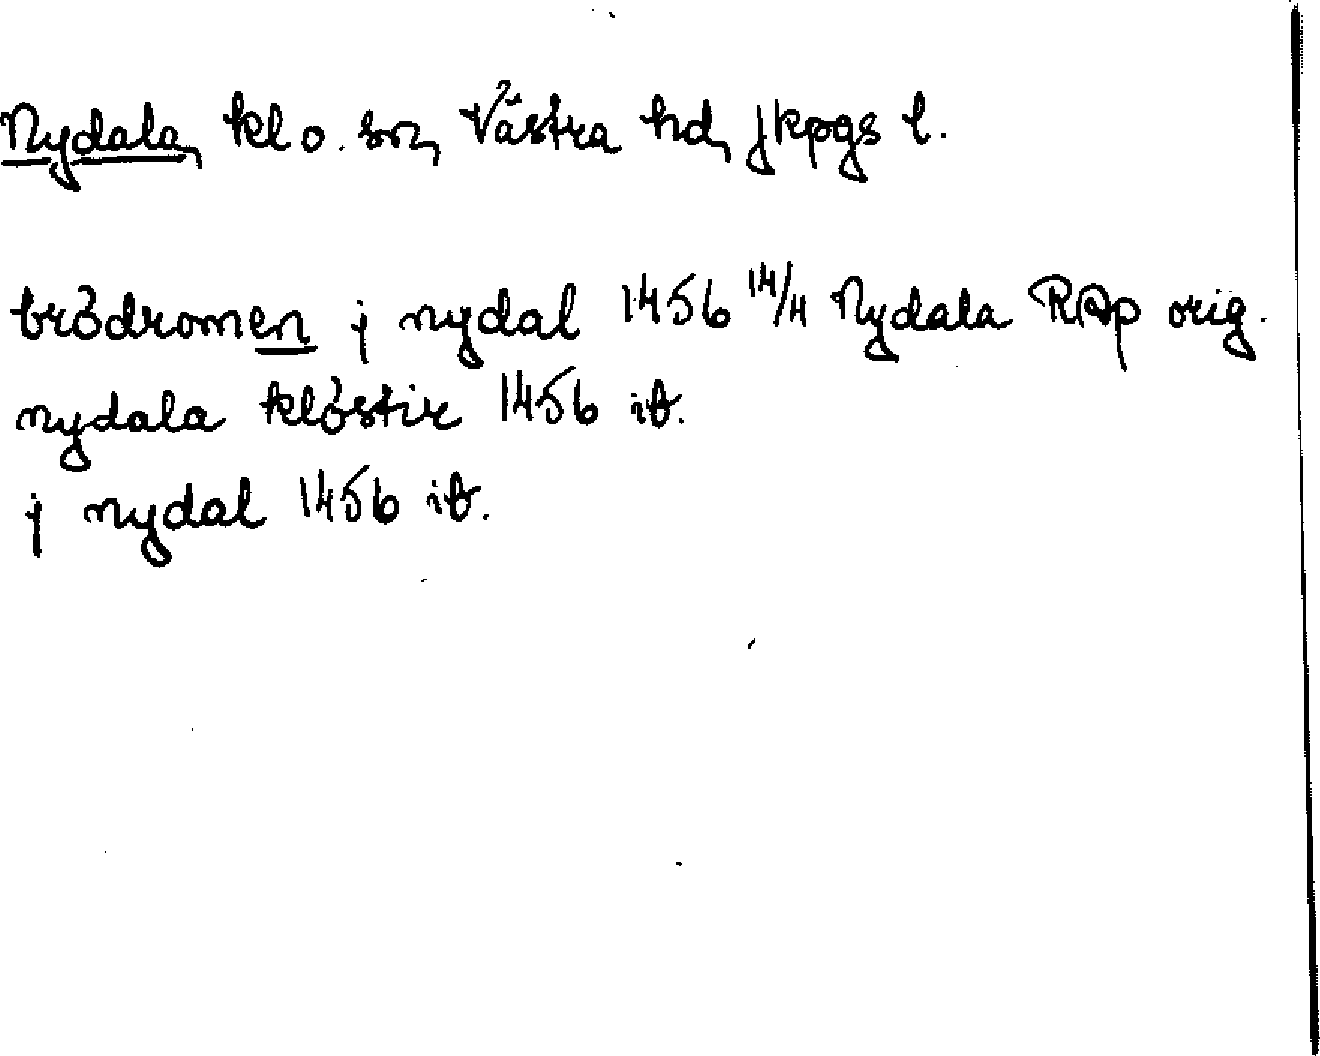 Nydala, kl o. sn, Västra hd, Jkpgs l.
brödromen j nydal 1456 14/4 Nydala RAp orig.
nydala klöstir 1456 ib.
j nydal 1456 ib.